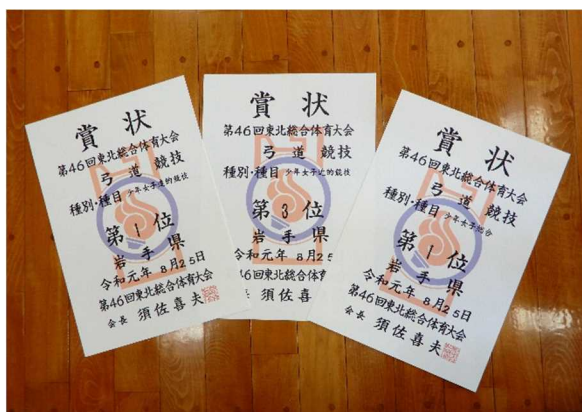 賞状
第46回東北総合体育大会
弓道競技
種別・種目 少年女子遠的競技
第1位
岩手県
令和元年8月25日
第46回東北総合体育大会
会長 須佐喜夫
賞状
第46回東北総合体育大会
弓道競技
種別・種目 少年女子近的競技
第3位
岩手県
令和元年8月25
46回東北総合体育
須佐喜
賞状
第46回東北総合体育大会
弓道競技
種別・種目 少年女子総合
第1位
岩手県
令和元年8月25日
第46回東北総合体育大会
会長 須佐喜夫